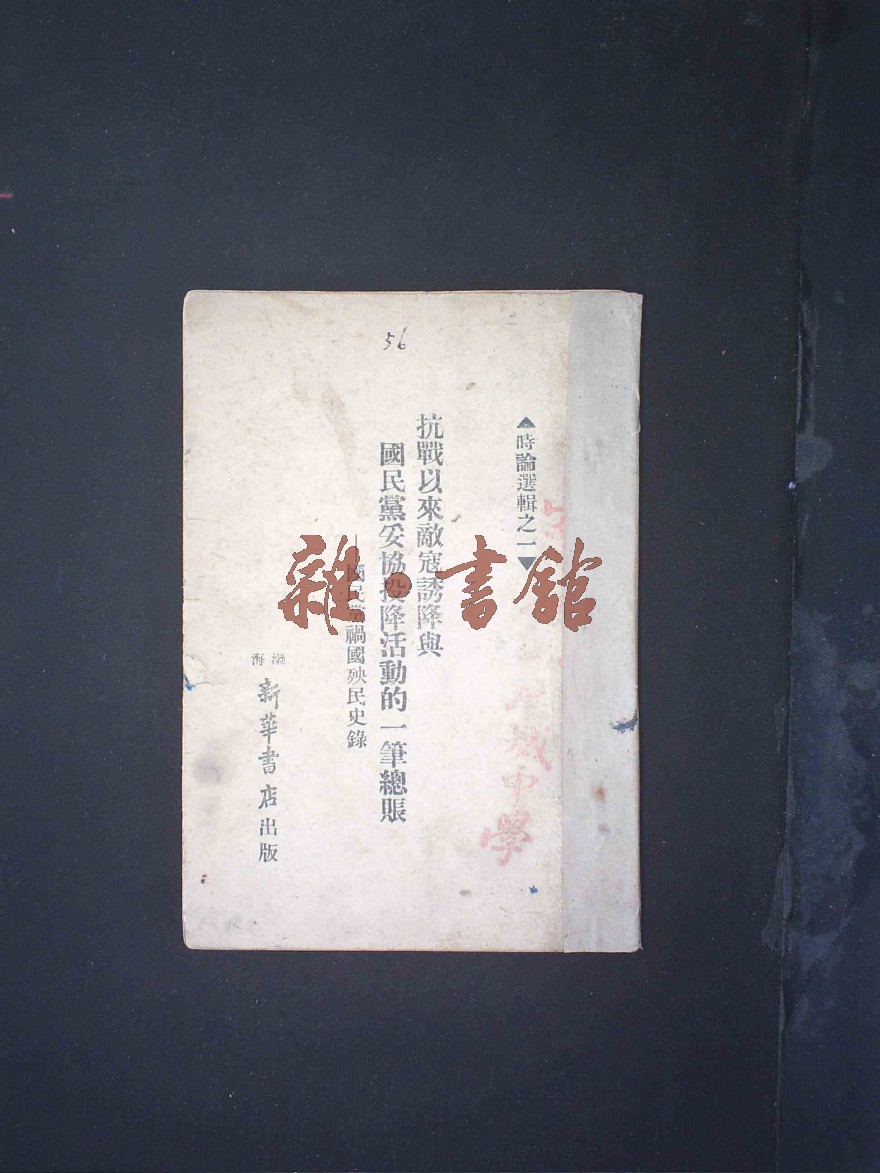 56
▲時論選輯之一▼
抗戰以來敵寇誘降與
國民黨妥協投降活動的一筆總賬
—國民黨禍國殃民史錄
渤海
新華書店出版
雜·書館
城中學